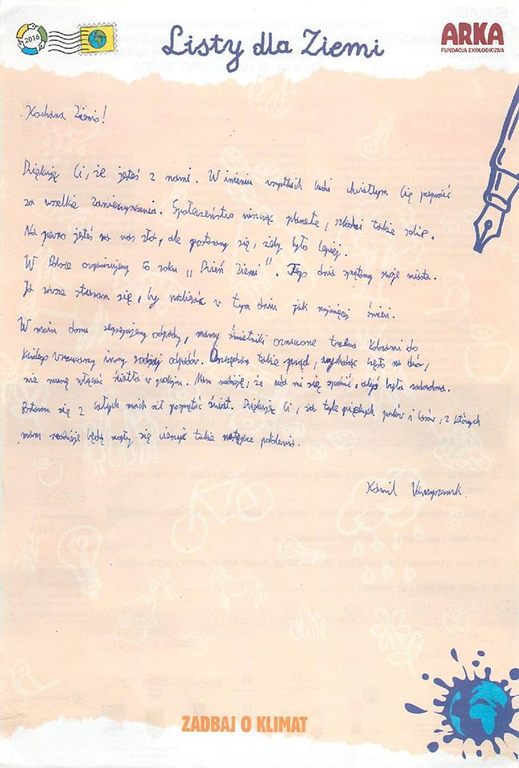 2016
Listy dla Ziemi
ARKA
FUNDACJA EKOLOGICZNA
Kochana Ziemio!
Dziękuję Ci, że jesteś z nami. W imieniu wszystkich ludzi chciałbym Cię przeprosić
za wszelkie zanieczyszczenia. Społeczeństwo niszcząc planetę, szkodzi także sobie.
Na pewno jesteś na nas zła, ale postaramy się, żeby było lepiej.
W Polsce organizujemy co roku "Dzień Ziemi". Tego dnia sprzątamy swoje miasta.
Ja zawsze staram się, by nazbierać w tym dniu jak najwięcej śmieci.
W moim domu segregujemy odpady, mamy śmietniki oznaczone trzema kolorami do
każdego wrzucamy inny rodzaj odpadów. Oszczędzam także prąd, wychodząc często na dwór,
nie muszę włączać światła w pokoju. Mam nadzieję, że uda mi się sprawić, abyś była zadowolona.
Postaram się z całych moich sił poprawiać świat. Dziękuję Ci, za tyle pięknych parków i lasów, z których
mam nadzieję będą mogły się cieszyć także następne pokolenia.
Kamil
ZADBAJ O KLIMAT